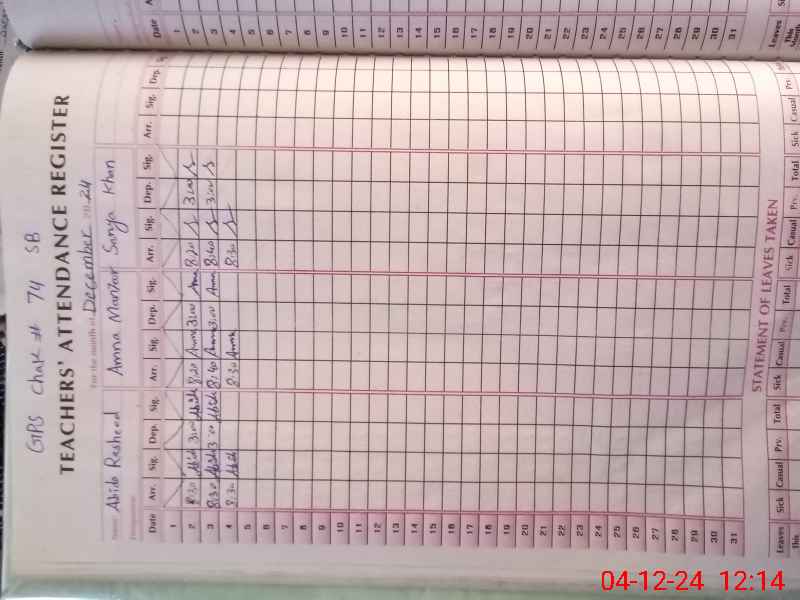 GPS Chak # 74 SB
TEACHERS' ATTENDANCE REGISTER
For the month of December 2024
Name Abida Rasheed Amna Manzur Sonya Khan
Date Arr. Sig. Dep. Sig. Arr. Sig. Dep. Sig. Arr. Sig. Dep. Sig. Arr. Sig. Dep.
1
2 8:30 Abida 3:00 Abida 8:20 Amna 3:00 Amna 8:20 3:00
3 8:30 Abida 3:00 Abida 8:40 Amna 3:00 Amna 8:40 3:00
4 8:30 Abida 8:30 Amna 8:30
5
6
7
8
9
10
11
12
13
14
15
16
17
18
19
20
21
22
23
24
25
26
27
28
29
30
31
STATEMENT OF LEAVES TAKEN
Leaves Sick Casual Prv. Total Sick Casual Prv. Total Sick Casual Prv. Total Sick Casual Prv.
This
Date 1 2 3 4 5 6 7 8 9 10 11 12 13 14 15 16 17 18 19 20 21 22 23 24 25 26 27 28 29 30 31 Leaves
This Month
04-12-24 12:14